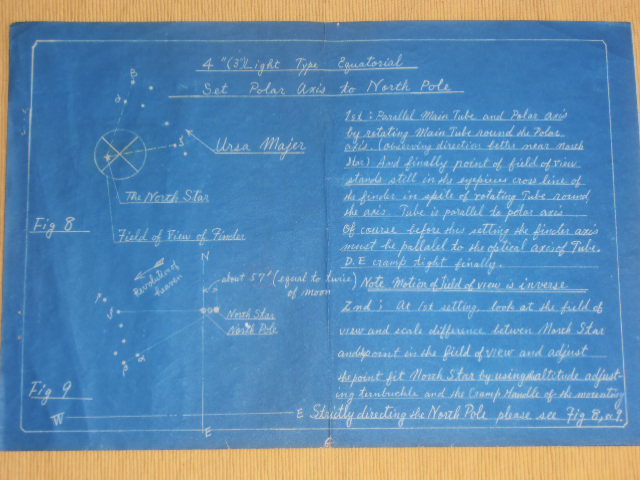 4"(3")Light Type Equatorial
Set Polar Axis to North Pole
B
α
δ
Ursa Majer
The North Star
Fig 8
Field of View of Finder
1st: Parallel Main Tube and Polar axis
by rotating Main Tube round the Polar
axis. (observing direction better near North
Star) And finally point of field of view
stands still in the eyepieces cross line of
the finder in spite of rotating Tube round
the axis. Tube is parallel to polar axis
Of course before this setting the finder axis
must be pallalel to the optical axis of Tube.
D.E cramp tight finally.
Note Motion of field of view is inverse
2nd: At 1st setting, look at the field of
view and scale difference betwen North Star
and point in the field of view and adjust
the point fit North Star by using altitude adjust-
ing ternbuckle and the Cramp Handle of the mounting
Strictly directing the North Pole please see Fig 8, 9
N
Revolution of
heaven
about 57' (equal to twice
of moon)
North Star
North Pole
β
α
Fig 9
W
E
E